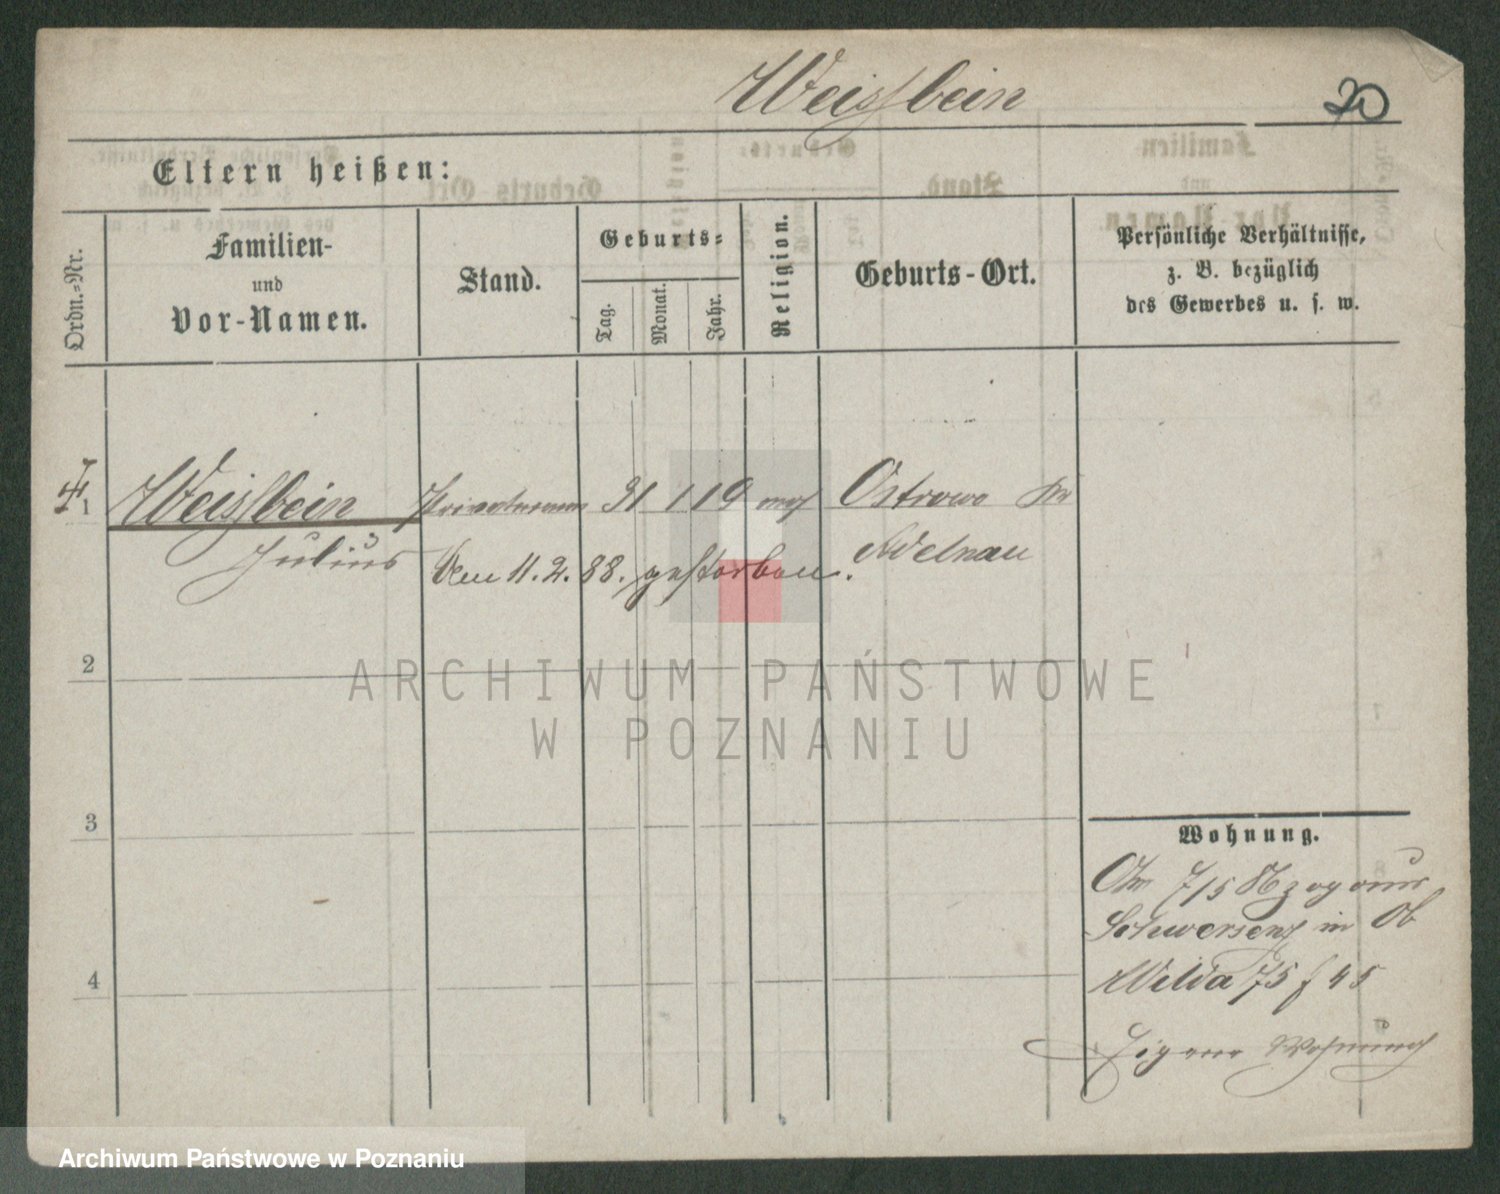 Weissbein
20
Eltern heißen:
Ordn.=Nr.
Familien-
und
Vor-Namen.
Stand.
Geburts=
Tag.
Monat.
Jahr.
Religion.
Geburts-Ort.
Persönliche Verhältnisse,
z. B. bezüglich
des Gewerbes u. s. w.
1 Weissbein 31 1 19 mos Ostrowo Kr
Julius Den 11. 2. 88. gestorben. Adelnau
2
3
4
Wohnung.
7/5 zog aus
Schwersenz in Ob
Wilda 75 f 45
Eigene Wohnung
ARCHIWUM PAŃSTWOWE
W POZNANIU
Archiwum Państwowe w Poznaniu